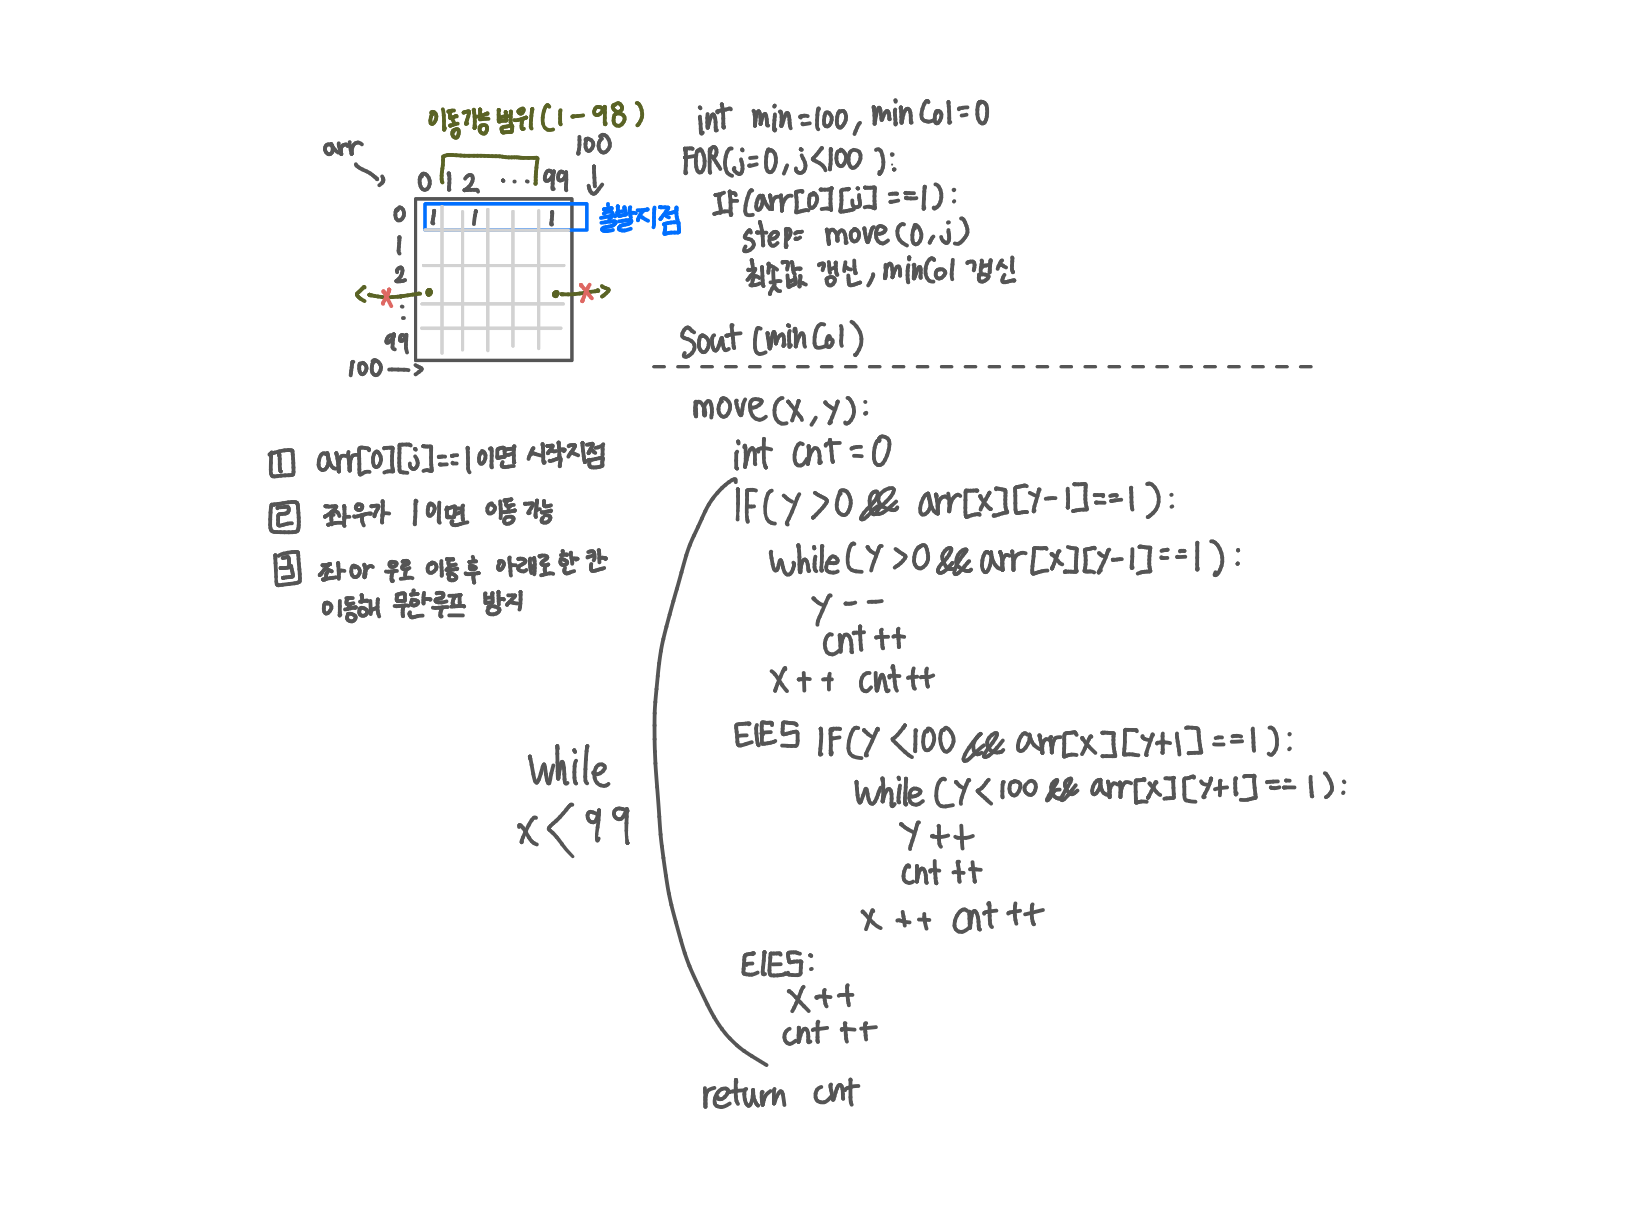 이동가능 범위(1-98)
arr
100
0 1 2 ... 99
0 1 1 1 출발지점
1
2
x x
:
99
100
1 arr[0][j]==1이면 시작지점
2 좌우가 1이면 이동 가능
3 좌 or 우로 이동 후 아래로 한 칸
이동해 무한루프 방지
int min=100, minCol=0
FOR(j=0, j<100):
IF(arr[0][j]==1):
step= move(0,j)
최솟값 갱신, minCol 갱신
Sout(minCol)
move(x,y):
int cnt=0
IF(y>0 && arr[x][y-1]==1):
while(y>0 && arr[x][y-1]==1):
y--
cnt++
x++ cnt++
ElES IF(y<100 && arr[x][y+1]==1):
while(y<100 && arr[x][y+1]==1):
y++
cnt++
x++ cnt++
ElES:
x++
cnt++
while
x<99
return cnt